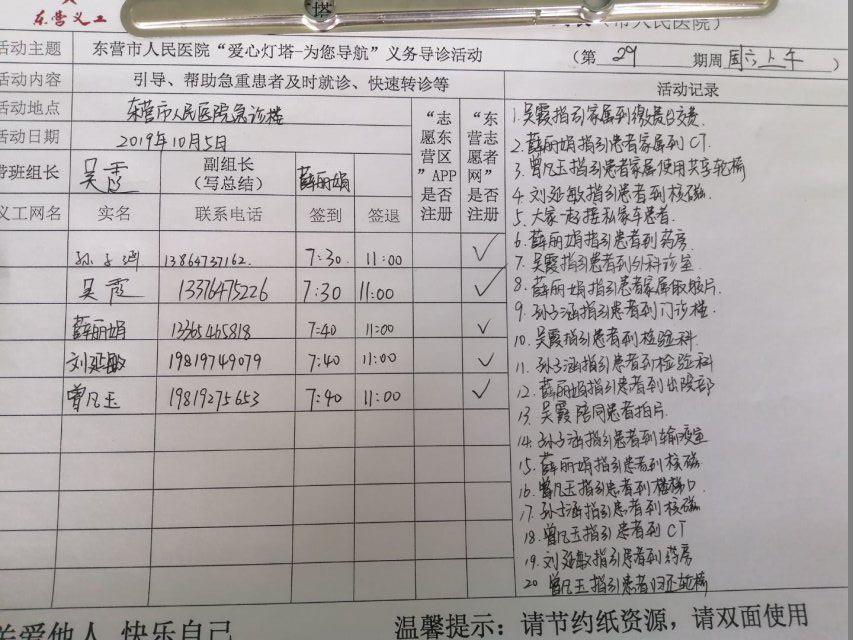 东营义工
塔
(市人民医院)
活动主题 东营市人民医院“爱心灯塔-为您导航”义务导诊活动 (第 29 期周 周六上午 )
活动内容 引导、帮助急重患者及时就诊、快速转诊等 活动记录
活动地点 东营市人民医院急诊楼
活动日期 2019年10月5日
带班组长 吴霞 副组长(写总结) 薛丽娟
“志愿东营区”APP是否注册
“东营志愿者网”是否注册
义工网名 实名 联系电话 签到 签退
孙子涵 13864737162. 7:30. 11:00 ✓
吴霞 13376475226 7:30 11:00 ✓
薛丽娟 13365465818 7:40 11:00 ✓
刘延敏 19819749079 7:40 11:00 ✓
曾凡玉 19819275653 7:40 11:00 ✓
1.吴霞指引家属到缴费口交费.
2.薛丽娟指引患者家属到CT.
3.曾凡玉指引患者家属使用共享轮椅
4.刘延敏指引患者到核磁.
5、大家一起接私家车患者.
6.薛丽娟指引患者到药房.
7.吴霞指引患者到外科诊室.
8.薛丽娟指引患者家属取胶片.
9.孙子涵指引患者到门诊楼.
10.吴霞指引患者到检验科.
11.孙子涵指引患者到检验科
12.薛丽娟指引患者到出院部
13.吴霞陪同患者拍片.
14.孙子涵指引患者到输液室
15.薛丽娟指引患者到核磁
16.曾凡玉指引患者到楼梯口.
17.孙子涵指引患者到核磁
18.曾凡玉指引患者到CT
19.刘延敏指引患者到药房
20 曾凡玉指引患者归还轮椅
关爱他人 快乐自己 温馨提示：请节约纸资源，请双面使用